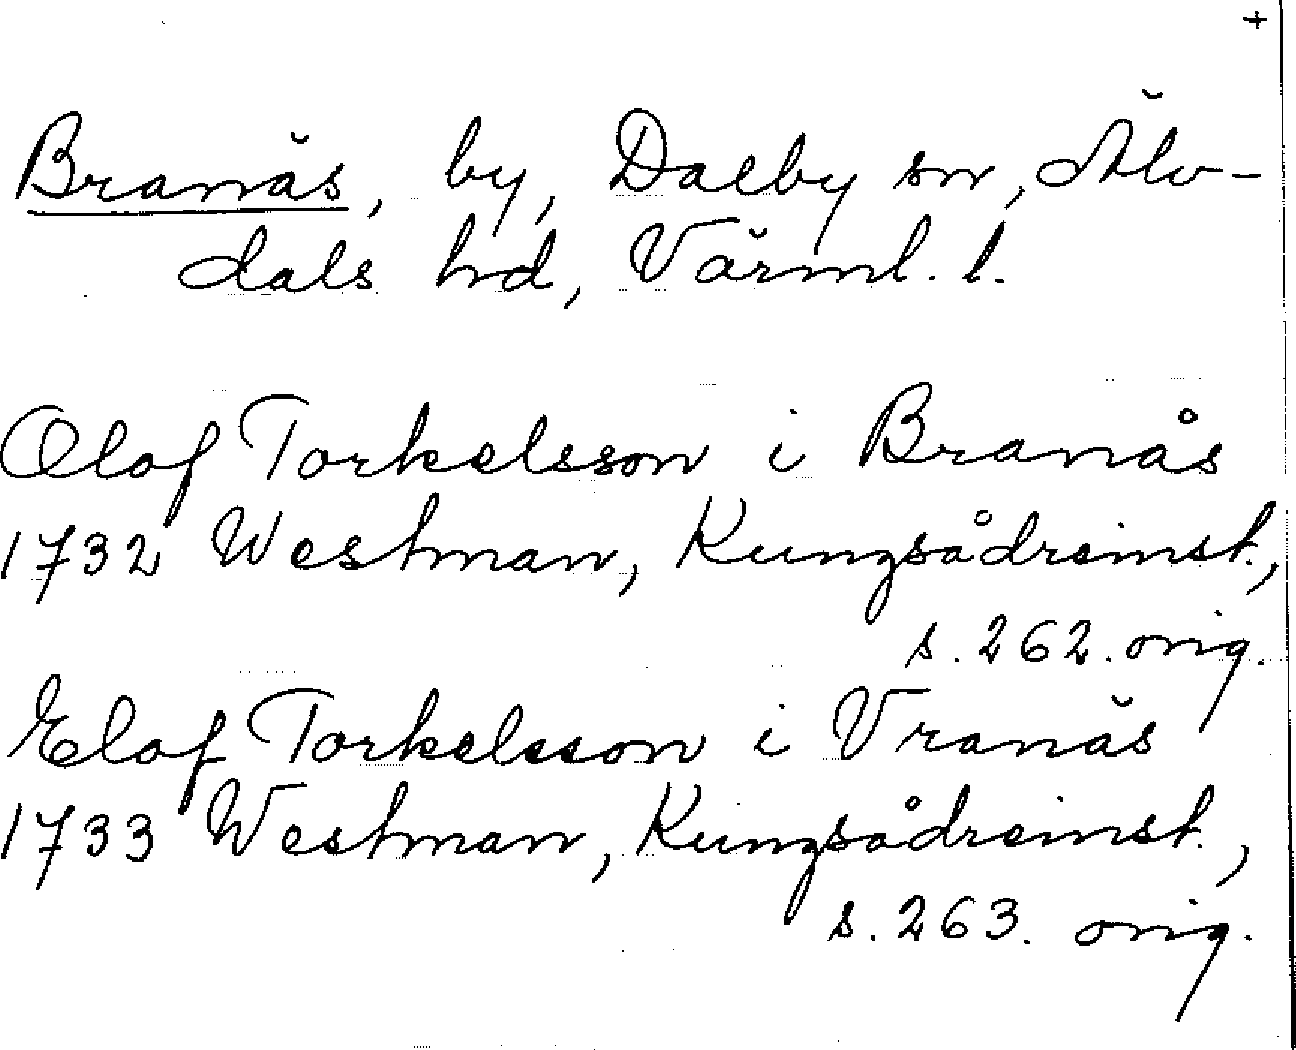 +
Branäs, by, Dalby sn, Älv-
dals hd, Värml. l.
Olof Torkelsson i Branås
1732 Westman, Kungsådreinst.,
s. 262. orig.
Elof Torkelsson i Vranäs
1733 Westman, Kungsådreinst.,
s. 263. orig.